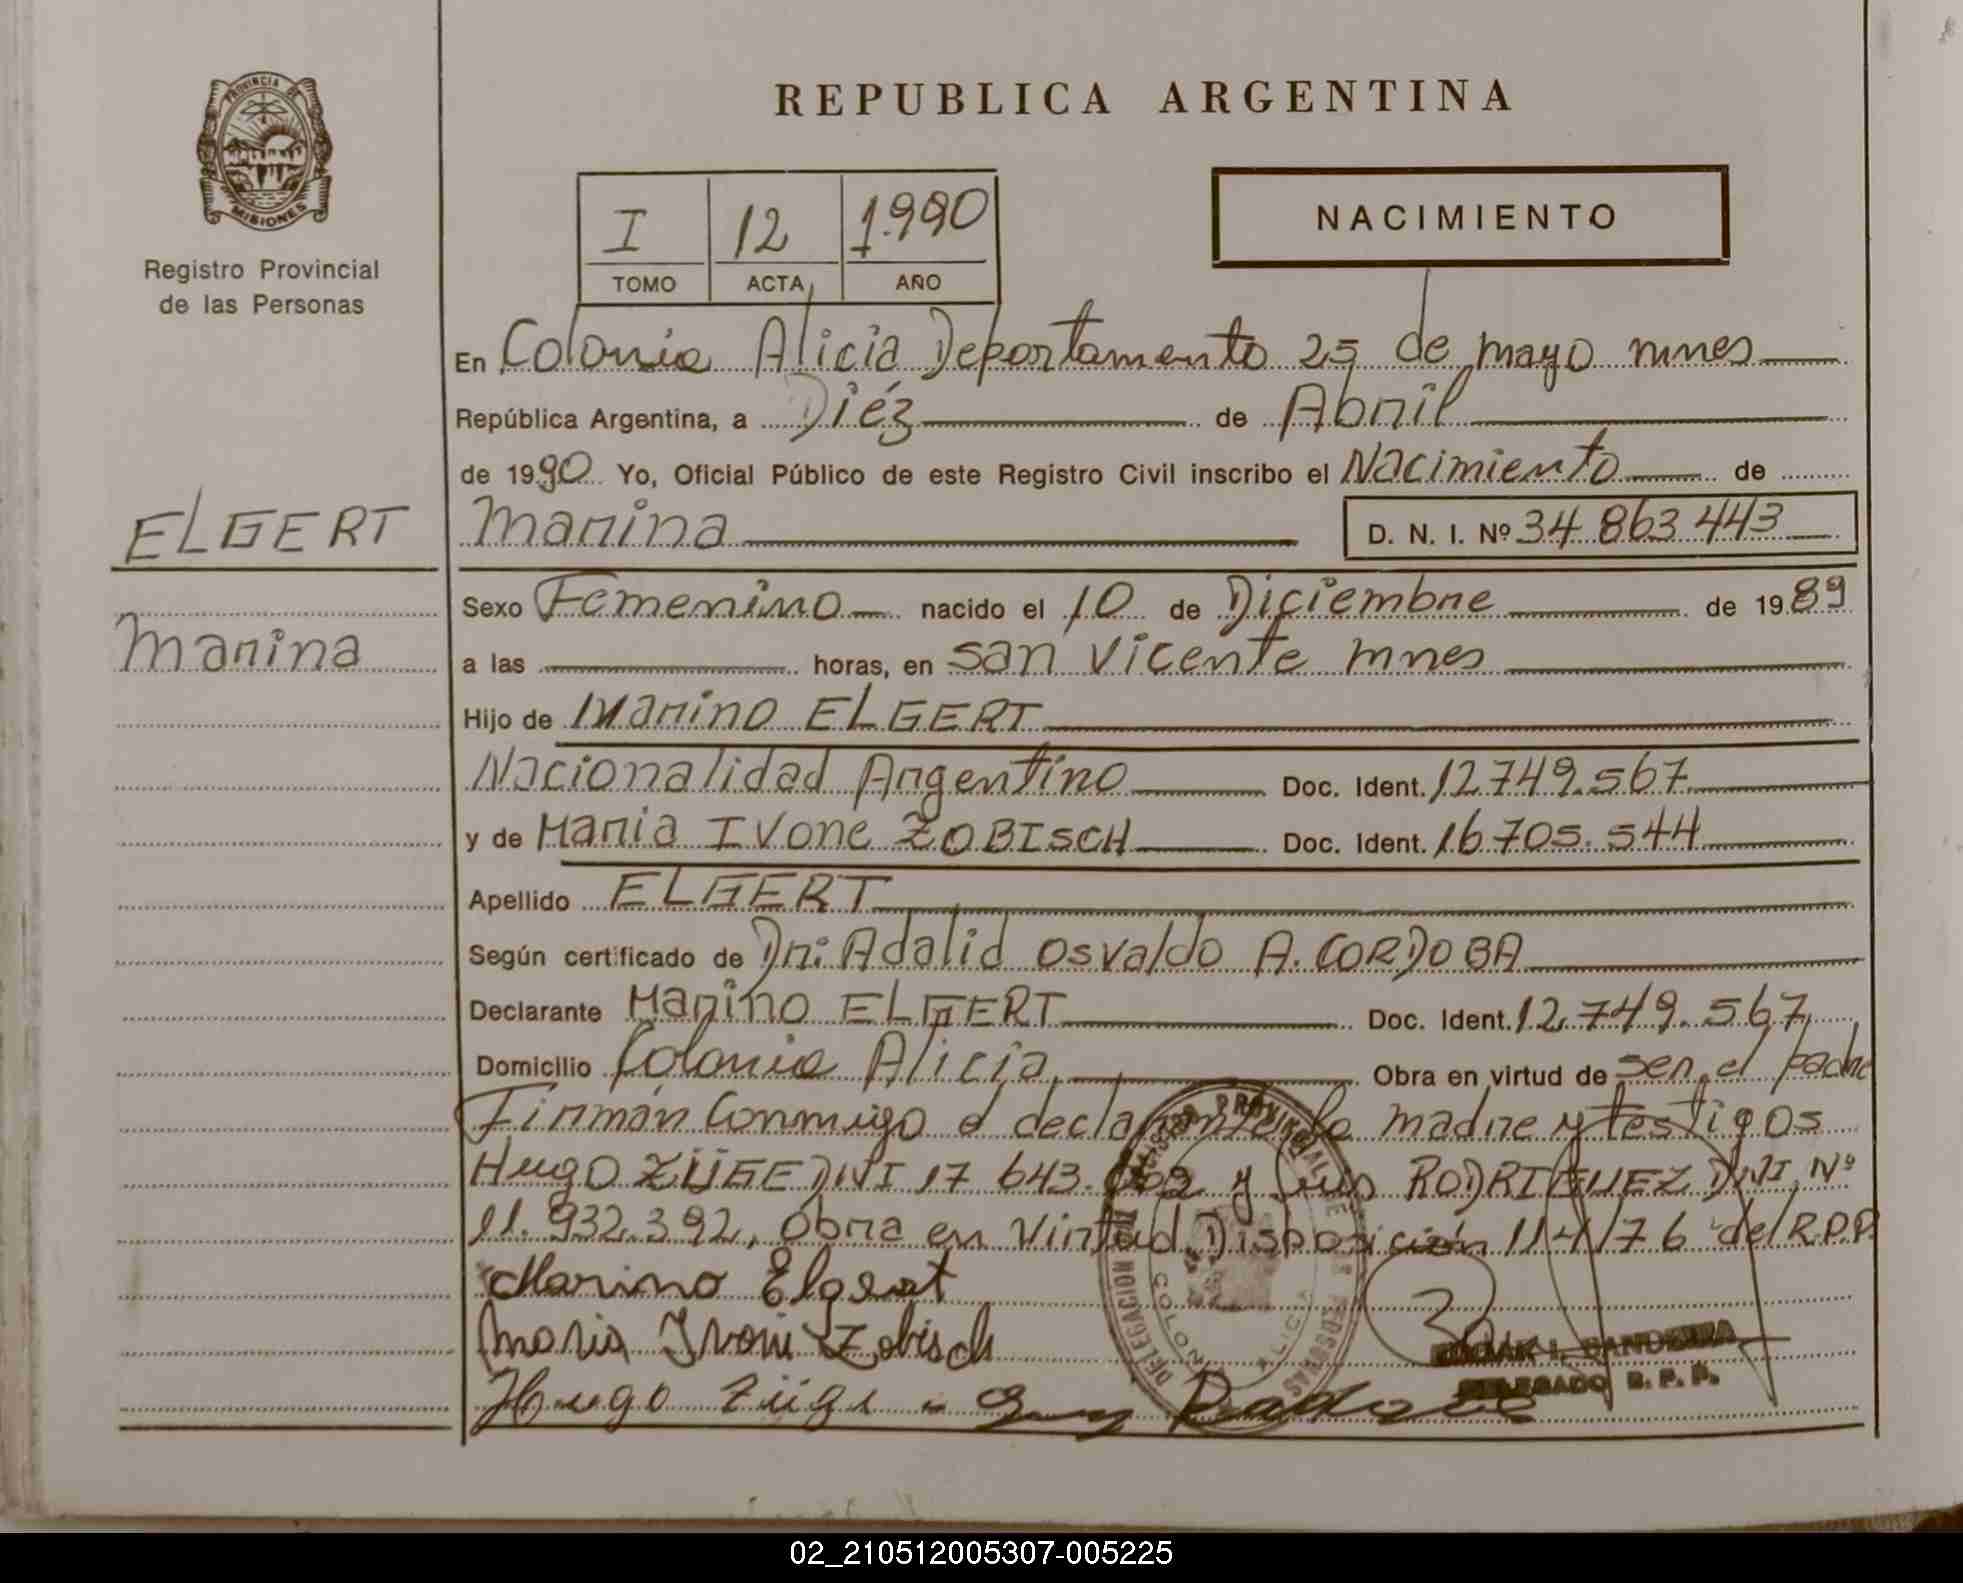 PROVINCIA DE
MISIONES
Registro Provincial
de las Personas
ELGERT
Marina
REPUBLICA ARGENTINA
I 12 1.990
TOMO ACTA AÑO
NACIMIENTO
En Colonia Alicia Departamento 25 de mayo mnes
República Argentina, a Diéz de Abril
de 1990 Yo, Oficial Público de este Registro Civil inscribo el Nacimiento de
Marina D. N. I. Nº 34 863 443
Sexo Femenino nacido el 10 de Diciembre de 1989
a las horas, en san Vicente mnes
Hijo de Marino ELGERT
Nacionalidad Argentino Doc. Ident. 12.749.567
y de Maria IVone ZOBISCH Doc. Ident. 16.705.544
Apellido ELGERT
Según certificado de Dr: Adalid Osvaldo A. CORDOBA
Declarante Marino ELGERT Doc. Ident. 12.749.567
Domicilio Colonia Alicia Obra en virtud de ser el padre
Firmán Conmigo el declarante la madre y testigos
Hugo ZÜGE DNI 17 643. y Luis RODRIGUEZ DNI Nº
11.932.392, obra en Virtud Disposición 114/76 del R.P.P.
Marino Elgert
Maria Ivoni Zobisch
Hugo Züge
DELEGADO R. P. P.
REGISTRO PROVINCIAL DE LAS PERSONAS
DELEGACION
COLONIA ALICIA
02_210512005307-005225